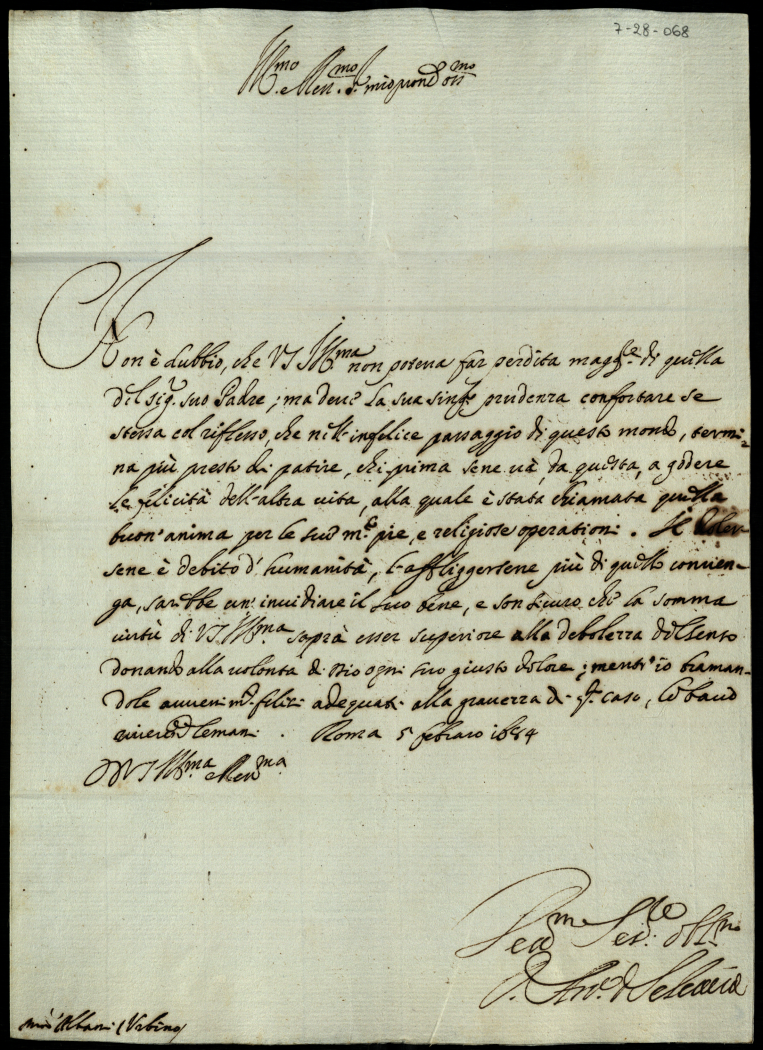 7-28-068
Ill.mo e Rev.mo S.r mio pron Oss.mo
Non è dubbio, che VS Ill.ma non poteva far perdita magg.re di quella
del sig.r suo Padre; ma deve la sua sing.re prudenza confortare se
stessa col riflesso, che nell'infelice passaggio di questo mondo, termi=
na più presto di patire, chi prima sene và, da questa, a godere
le felicità dell'altra vita, alla quale è stata chiamata quella
buon'anima per le sue m.te pie, e religiose operationi. Il doler
sene è debito d'humanità, l'affliggersene più di quello convien=
ga, sarebbe un'invidiare il suo bene, e son sicuro che la somma
virtù di VS Ill.ma saprà esser superiore alla debolezza del senso
donando alla volontà di Dio ogni suo giusto dolore; mentr'io braman=
dole avvenim.ti felici adequati alla gravezza di q.to caso, le bacio
le mani. Roma 5 febraro 1684
D VS Ill.ma e Rev.ma
Ser.e
Albani (Urbino)